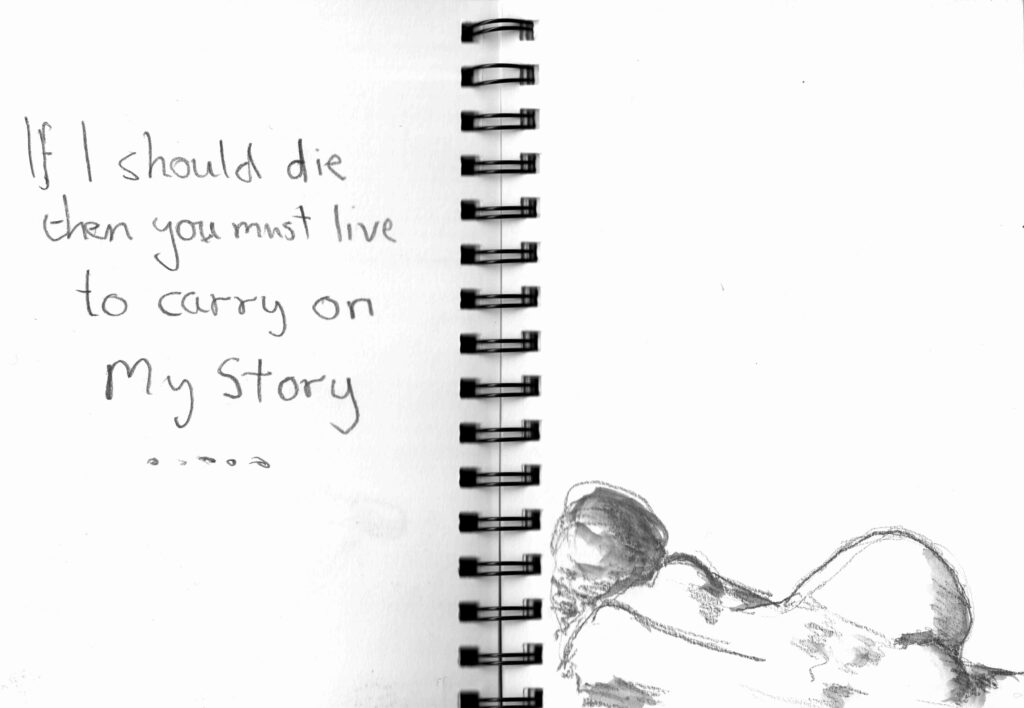 If I should die
then you must live
to carry on
My Story
.....